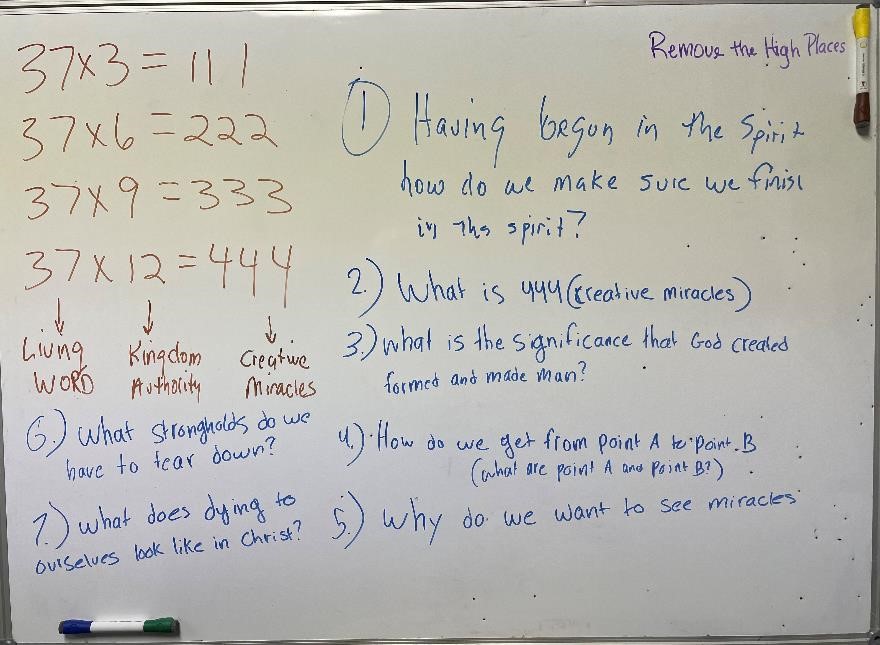 Remove the High Places
37x3 = 111
37x6 = 222
37x9 = 333
37 x 12 = 444
Living
WORD
Kingdom
Authority
Creative
Miracles
1 Having begun in the Spirit
how do we make sure we finish
in the spirit?
2.) What is 444 (creative miracles)
3.) what is the significance that God created
formed and made man?
4.) How do we get from point A to point B
(what are point A and Point B?)
5.) Why do we want to see miracles
6.) what strongholds do we
have to tear down?
7.) what does dying to
ourselves look like in Christ?